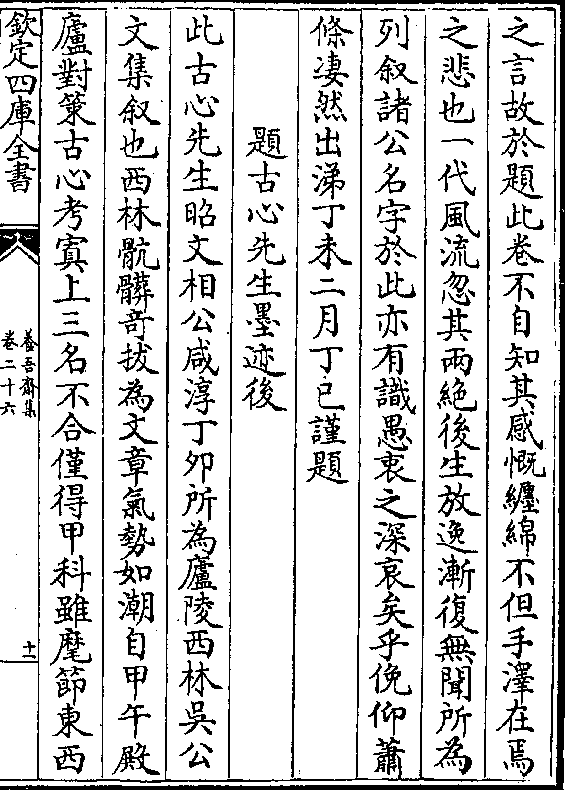 之言故於題此卷不自知其感慨纒綿不但手澤在焉
之悲也一代風流忽其兩絶後生放逸漸復無聞所為
列叙諸公名字於此亦有識愚衷之深哀矣乎俛仰蕭
條凄然出涕丁未二月丁巳謹題
題古心先生墨迹後
此古心先生昭文相公咸淳丁夘所為廬陵西林吳公
文集叙也西林骯髒竒拔為文章氣勢如潮自甲午殿
廬對策古心考寘上三名不合僅得甲科雖麾節東西
欽定四庫全書
養吾齋集
卷二十六
十一